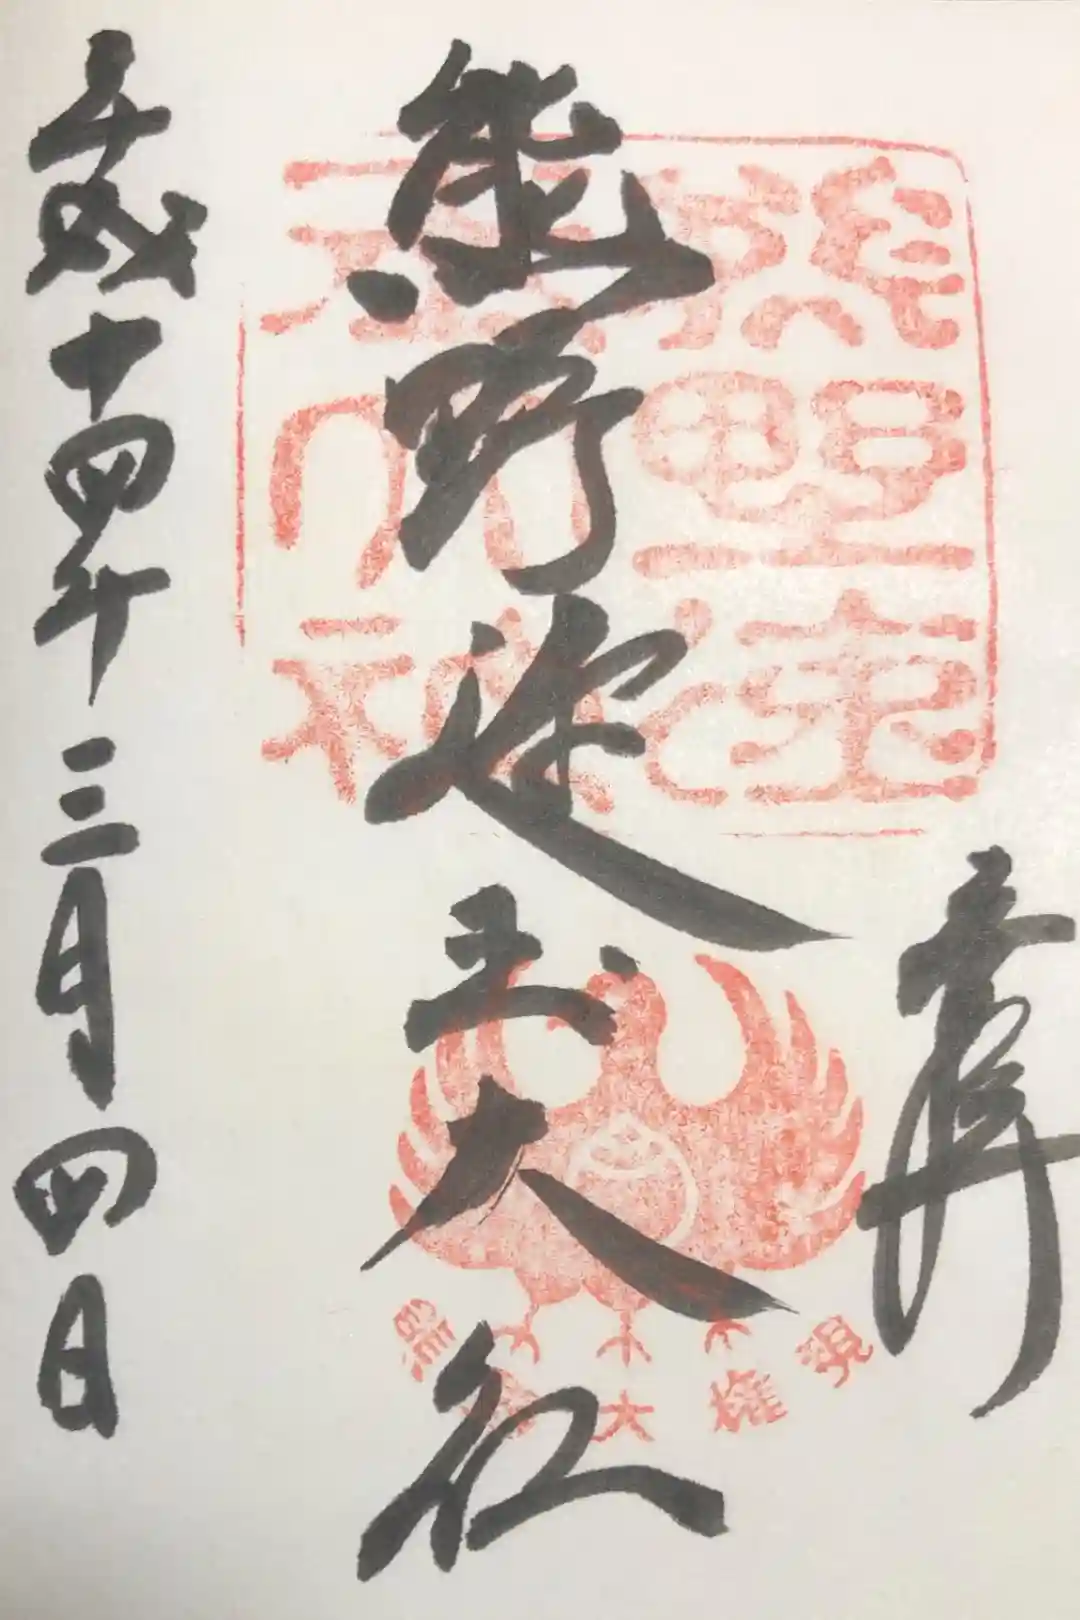 奉拝
熊野速玉大社
平成十四年三月四日
熊野速
玉大社
熊野大權現